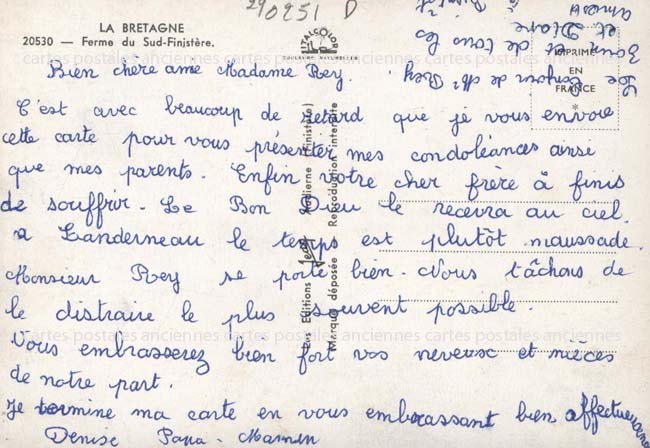 290251 D
LA BRETAGNE
20530 — Ferme du Sud-Finistère.
ITALCOLOR
IMPRIMÉ
EN
FRANCE
*
cartes postales anciennes cartes postales anciennes cartes postales anciennes
Bien chère ame Madame Rey.
C'est avec beaucoup de retard que je vous envoie
cette carte pour vous présenter mes condoléances ainsi
que mes parents. Enfin votre cher frère à finis
de souffrir. Le Bon Dieu le recevra au ciel.
a Landerneau le temps est plutôt maussade.
Monsieur Rey se porte bien. Nous tâchons de
le distraire le plus souvent possible.
cartes postales anciennes cartes postales anciennes cartes postales anciennes
Vous embrasserez bien fort vos neveux et nièces
de notre part.
Je termine ma carte en vous embrassant bien affectueusement
Denise Papa - Maman
Les Editions Jean
(Finistère)
Marque déposée Reproduction interdite
de Mr Rey
et de tous les
et Diane